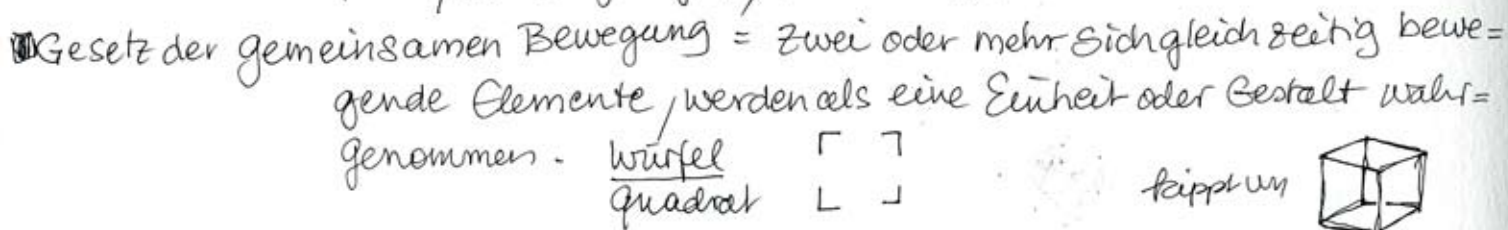 Gesetz der gemeinsamen Bewegung = zwei oder mehr sich gleichzeitig bewe=
gende Elemente, werden als eine Einheit oder Gestalt wahr=
genommen. Würfel
Quadrat kippt um